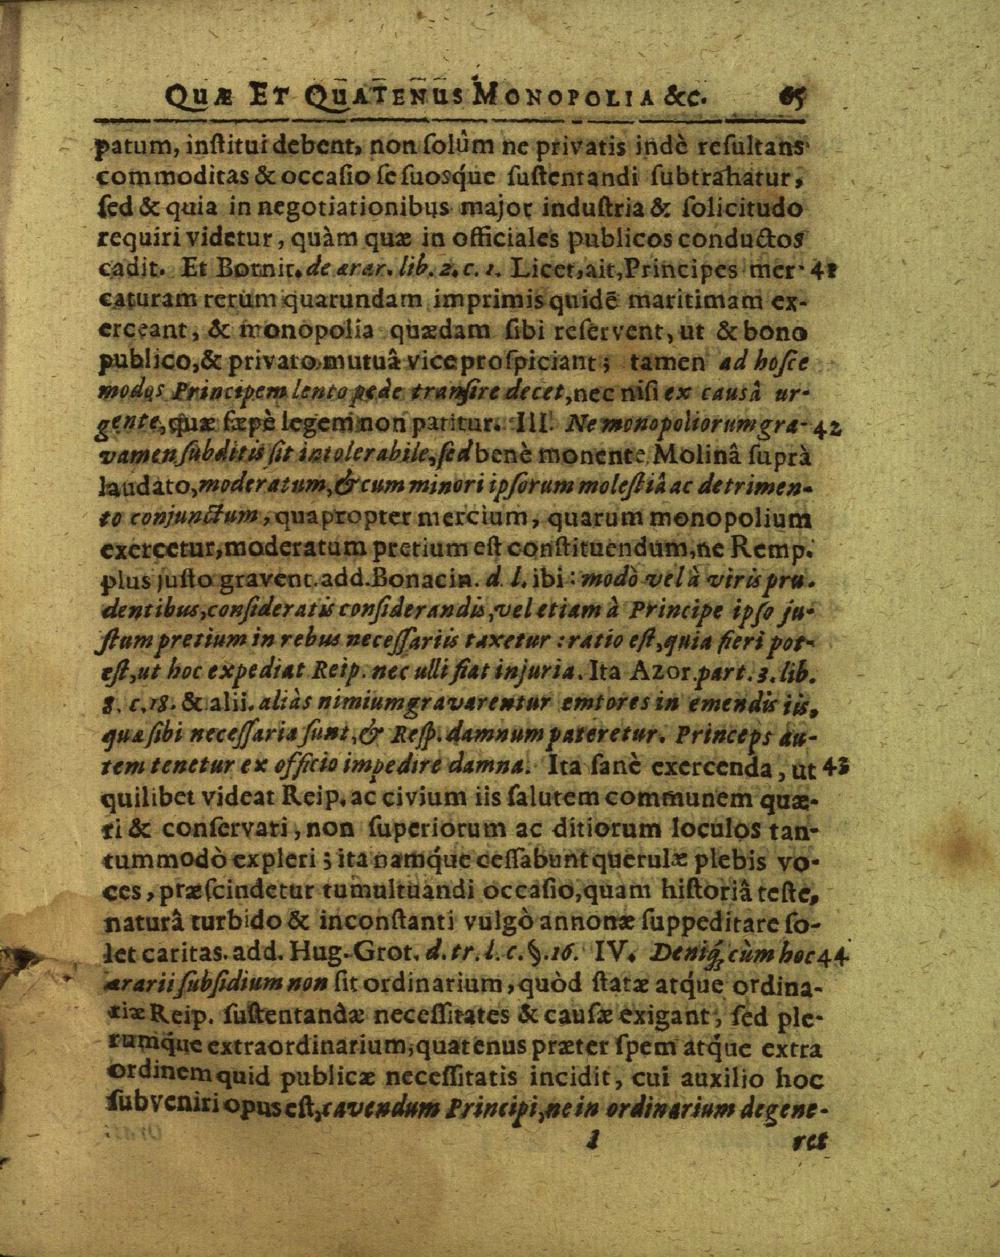 QUÆ ET QUATENUS MONOPOLIA &c. 65
patum, inſtitui debent, non ſolùm ne privatis indè reſultans
commoditas & occaſio ſe ſuosq́ue ſuſtentandi ſubtrahatur,
ſed & quia in negotiationibus major induſtria & ſolicitudo
requiri videtur, quàm quæ in officiales publicos conductos
cadit. Et Bornit. de ærar. lib. 2. c. 1. Licet, ait, Principes mer- 41
caturam rerum quarundam imprimis quidē maritimam ex-
erceant, & monopolia quædam ſibi reſervent, ut & bono
publico, & privato mutuâ vice proſpiciant; tamen ad hoſce
modos Principem lento pede tranſire decet, nec niſi ex causâ ur-
gente, quæ ſæpè legem non patitur. III. Ne monopoliorum gra- 42
vamen ſubditis ſit intolerabile, ſed benè monente Molinâ ſuprà
laudato, moderatum, & cum minori ipſorum moleſtiâ ac detrimen-
to conjunctum, quapropter mercium, quarum monopolium
exercetur, moderatum pretium eſt conſtituendum, ne Remp.
plus juſto gravent. add. Bonacin. d. l. ibi: modò vel à viris pru-
dentibus, conſideratis conſiderandis, vel etiam à Principe ipſo ju-
ſtum pretium in rebus neceſſariis taxetur: ratio eſt, quia fieri pot-
eſt, ut hoc expediat Reip. nec ulli fiat injuria. Ita Azor. part. 3. lib.
8. c. 18. & alii. aliàs nimium gravarentur emtores in emendis iis,
quæ ſibi neceſſaria ſunt, & Reſp. damnum pateretur. Princeps au-
tem tenetur ex officio impedire damna. Ita ſanè exercenda, ut 43
quilibet videat Reip. ac civium iis ſalutem communem quæ-
ri & conſervari, non ſuperiorum ac ditiorum loculos tan-
tummodò expleri; ita namq́ue ceſſabunt querulæ plebis vo-
ces, præſcindetur tumultuandi occaſio, quam hiſtoriâ teſte,
naturâ turbido & inconſtanti vulgò annonæ ſuppeditare ſo-
let caritas. add. Hug. Grot. d. tr. l. c. §. 16. IV. Deniq́; cùm hoc 44
ærarii ſubſidium non ſit ordinarium, quòd ſtatæ atq́ue ordina-
riæ Reip. ſuſtentandæ neceſſitates & cauſæ exigant, ſed ple-
rumq́ue extraordinarium, quatenus præter ſpem atq́ue extra
ordinem quid publicæ neceſſitatis incidit, cui auxilio hoc
ſubveniri opus eſt, cavendum Principi, ne in ordinarium degene-
I ret